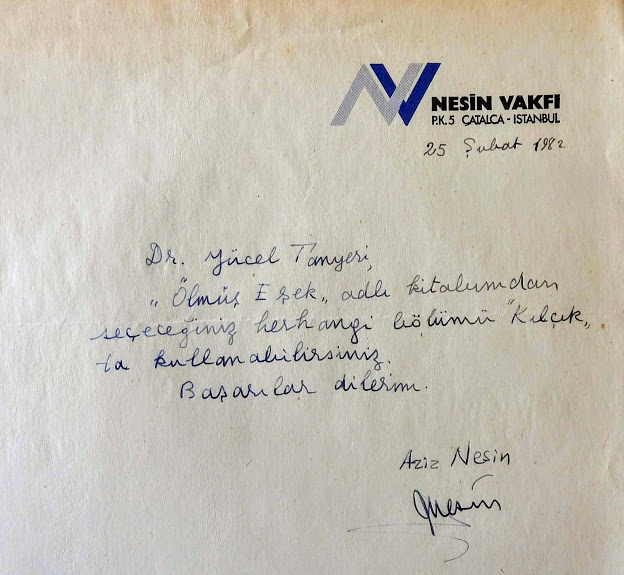 NESİN VAKFI
P.K. 5 ÇATALCA - İSTANBUL
25 Şubat 1982
Dr. Yücel Tanyeri,
„Ölmüş Eşek„ adlı kitabımdan
seçeceğiniz herhangi bölümü "Kılçık„
ta kullanabilirsiniz.
Başarılar dilerim.
Aziz Nesin
Nesin